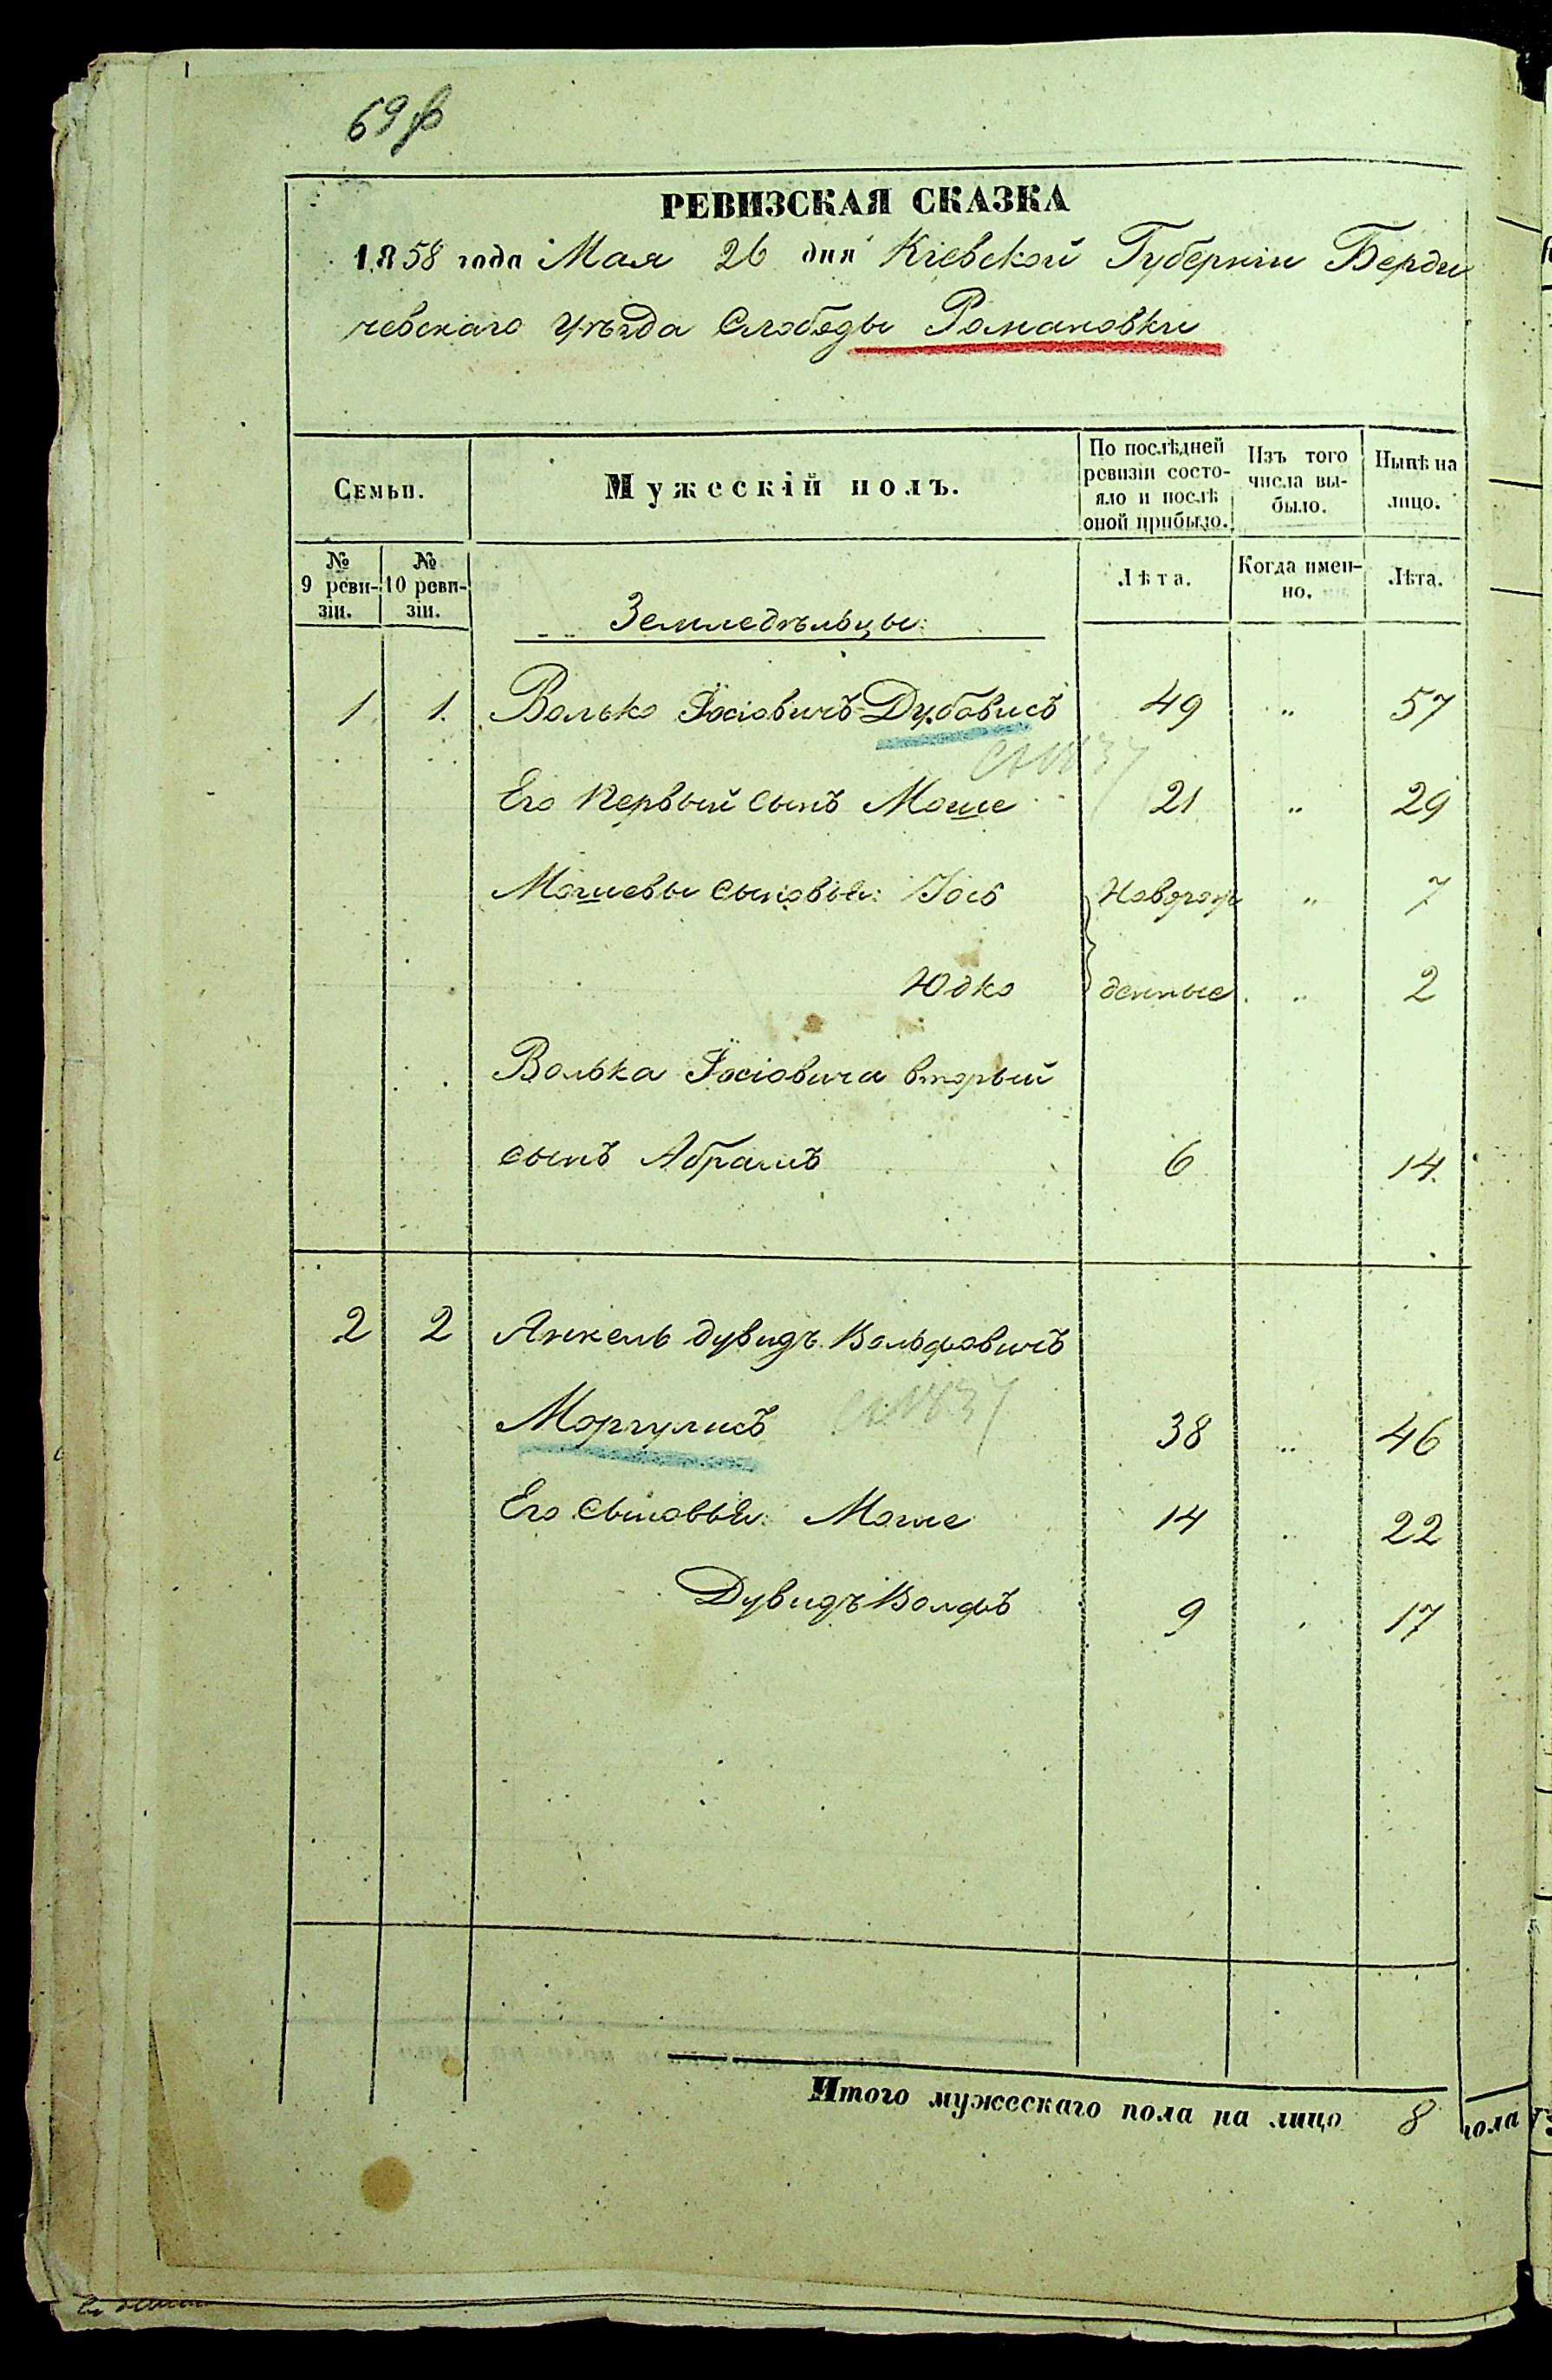 69
РЕВИЗСКАЯ СКАЗКА
1858 года Мая 26 дня Кіевской Губерніи Берди
чевскаго Уѣзда Слободы Романовки
Семьи.
Мужескій полъ.
По послѣдней ревизіи состояло и послѣ оной прибыло.
Изъ того числа выбыло.
Нынѣ на лицо.
№ 9 ревизіи.
№ 10 ревизіи.
Земледѣльцы:
Лѣта.
Когда именно.
Лѣта.
1 1. Волько Іосіовичъ Дубовисъ 49 " 57
Его первый сынъ Моше 21 " 29
Мошевы сыновья: Іось Новорож " 7
Юдко денные " 2
Волька Іосіовича вторый
сынъ Абрамъ 6 14.
2 2 Янкель Дувидъ Вольфовичъ
Моргулисъ 38 " 46
Его сыновья: Моше 14 " 22
Дувидъ Волфъ 9 " 17
Итого мужескаго пола на лицо 8
пола